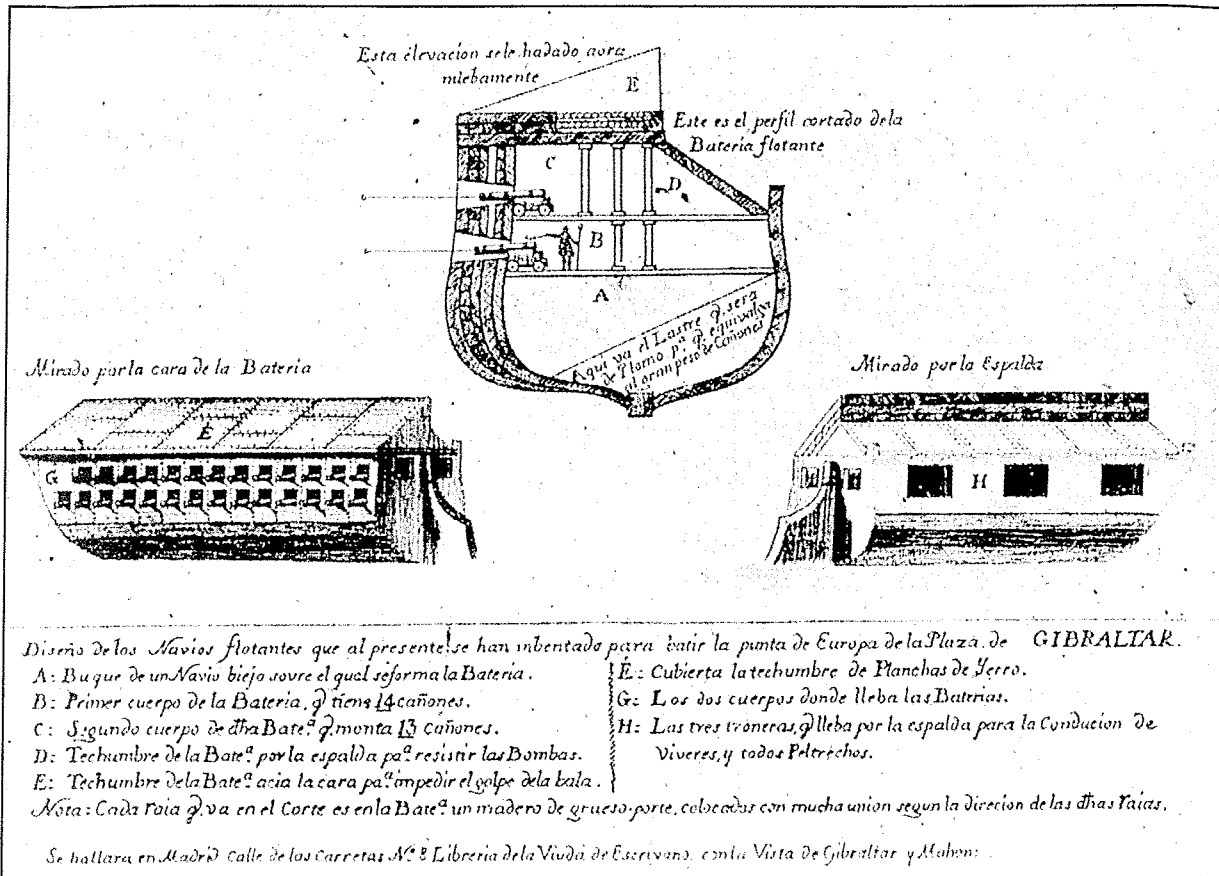 Esta elevacion sele hadado aora
nuebamente
E
Este es el perfil cortado dela
Bateria flotante
C
D
B
A
Aqui va el Lastre q. sera
de Plomo pª. q. equivalga
al gran peso de Cañones
Mirado por la cara de la Bateria
Mirado por la Espalda
E
G
H
Diseño de los Navios flotantes que al presente se han inbentado para batir la punta de Europa de la Plaza de GIBRALTAR.
A: Buque de un Navio biejo sovre el qual seforma la Bateria.
B: Primer cuerpo de la Bateria, q tiene 14 cañones.
C: Segundo cuerpo de dha Bateª. q. monta 13 Cañones.
D: Techumbre de la Bateª. por la espalda pª. resistir las Bombas.
E: Techumbre dela Bateª. acia la cara pª. impedir el golpe dela bala.
E: Cubierta la techumbre de Planchas de Yerro.
G: Los dos cuerpos donde lleba las Baterias.
H: Las tres troneras, q lleba por la espalda para la Conducion de
Viveres, y todos Peltrechos.
Nota: Cada raia q. va en el Corte es enla Bateª. un madero de grueso porte, colocados con mucha union segun la direcion de las dhas raias.
Se hallara en Madrid Calle de los Carretas Nº. 8 Libreria dela Viuda de Escrivano, con la Vista de Gibraltar y Mahon: